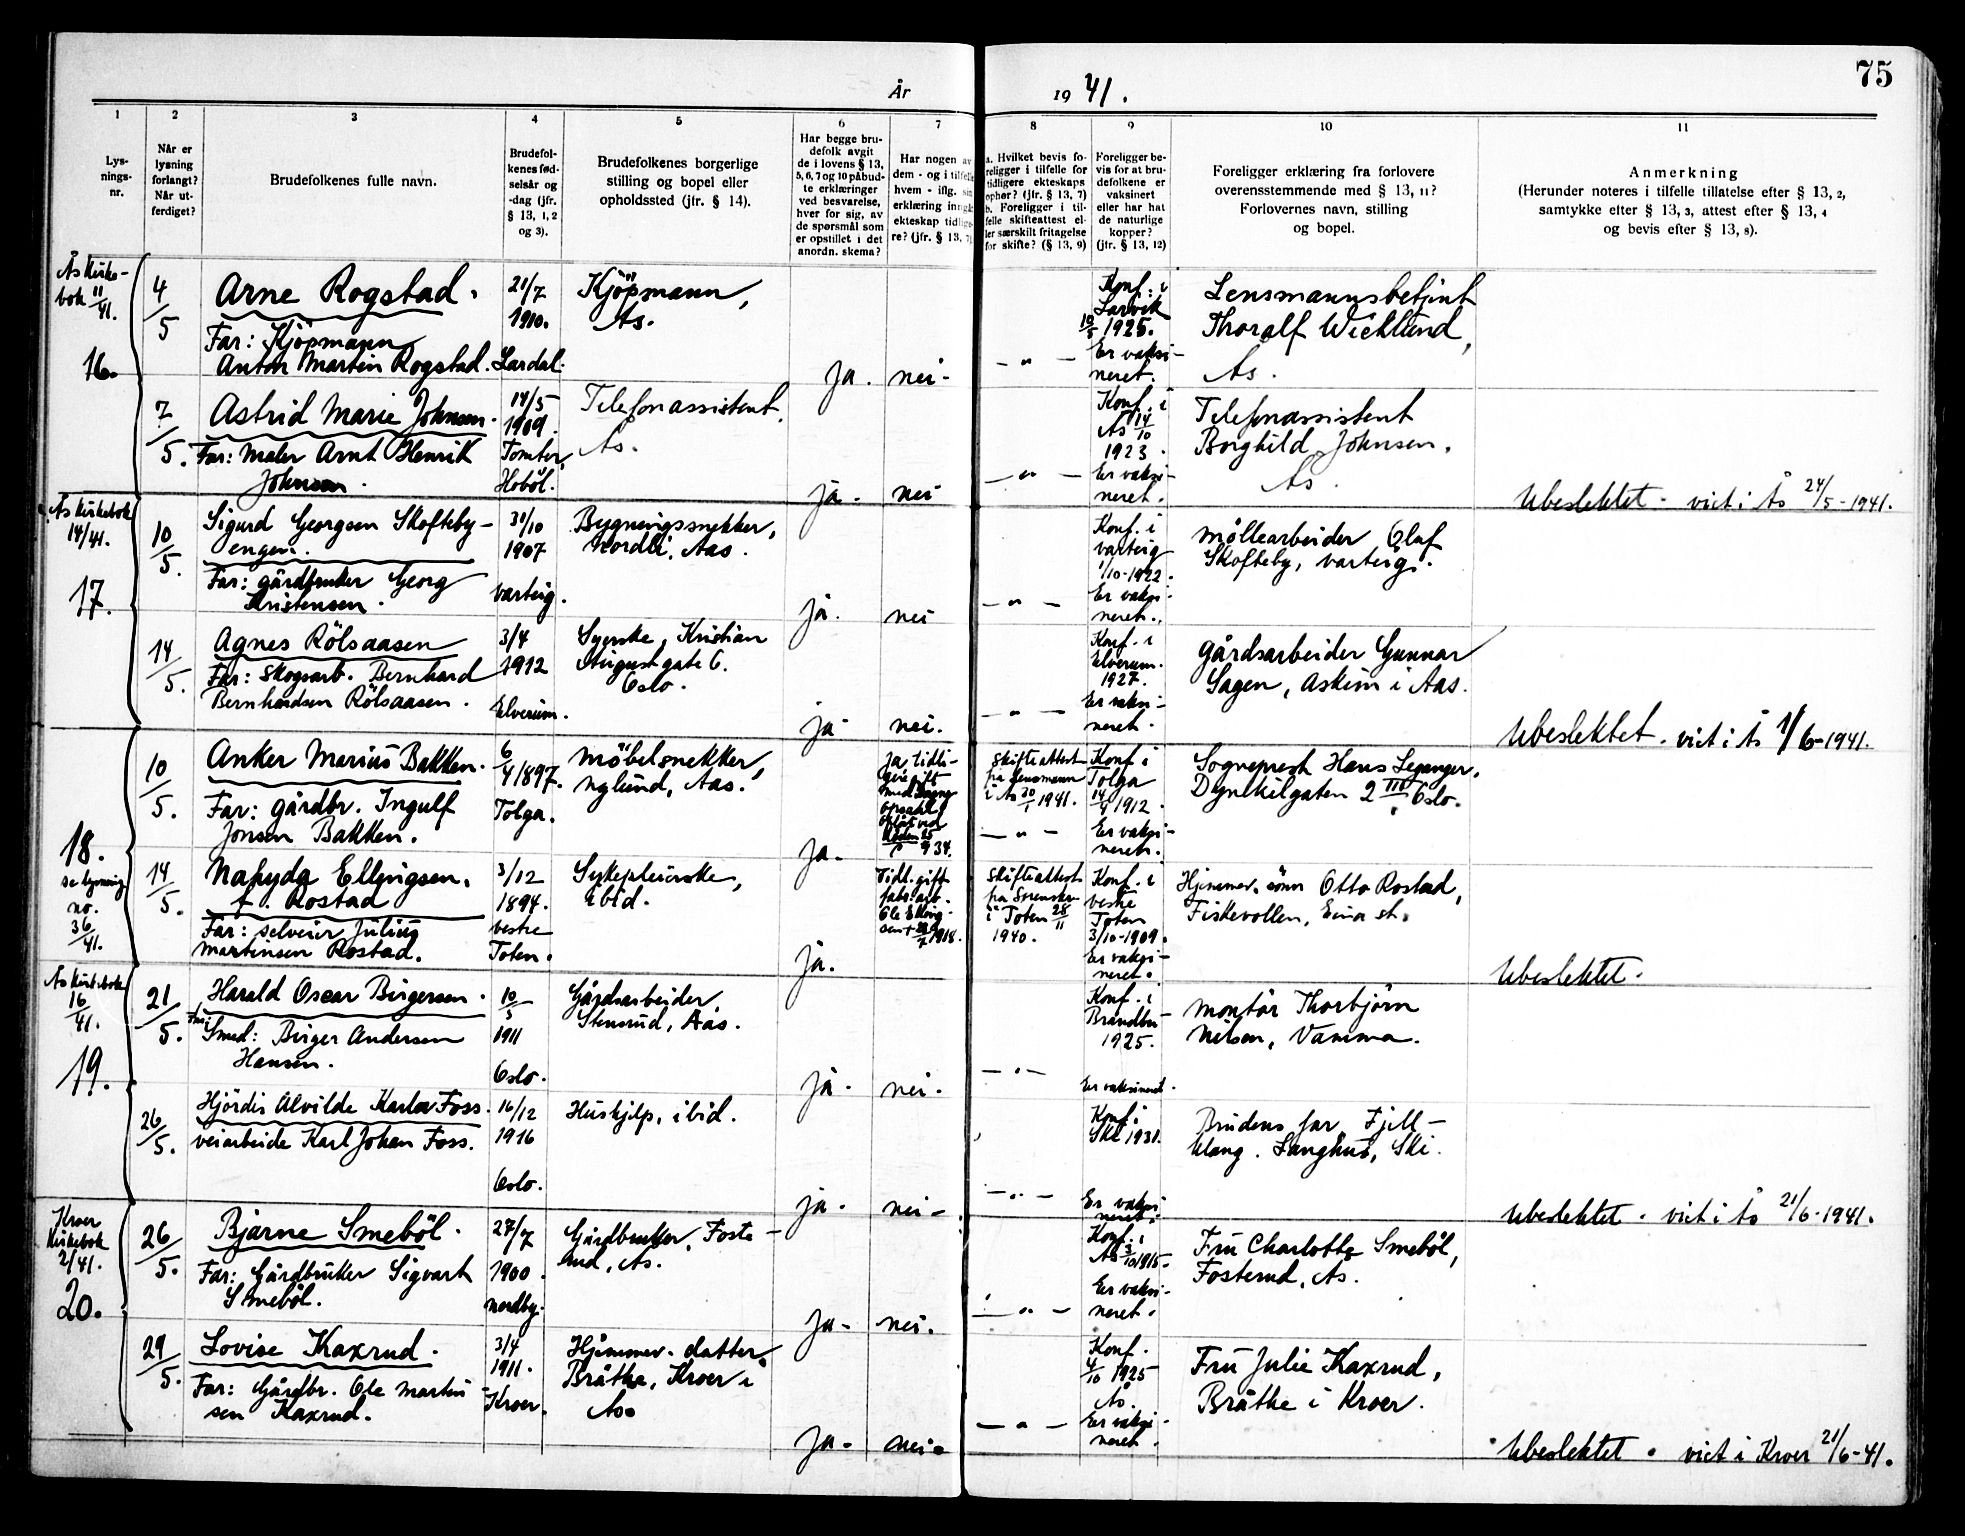 År 1941.
75
1
2
3
4
5
6
7
8
9
10
11
Lys-
nings-
nr.
Når er
lysning
forlangt?
Når ut-
ferdiget?
Brudefolkenes fulle navn.
Brudefol-
kenes fød-
selsår og
-dag (jfr.
§ 13, 1, 2
og 3).
Brudefolkenes borgerlige
stilling og bopel eller
opholdssted (jfr. § 14).
Har begge bru-
defolk avgit
de i lovens § 13,
5, 6, 7 og 10 påbud-
te erklæringer
ved besvarelse,
hver for sig, av
de spørsmål som
er opstillet i det
anordn. skema?
Har nogen av
dem - og i tilfelle
hvem - iflg. sin
erklæring inngått
ekteskap tidlige-
re? (jfr. § 13, 7)
a. Hvilket bevis fo-
religger i tilfelle for
tidligere ekteskaps
ophør? (jfr. § 13, 7)
b. Foreligger i til-
felle skifteattest el-
ler særskilt fritagelse
for skifte? (§ 13, 9)
Foreligger be-
vis for at bru-
defolkene er
vaksinert
eller har hat
de naturlige
kopper?
(jfr. § 13, 12)
Foreligger erklæring fra forlovere
overensstemmende med § 13, 11?
Forlovernes navn, stilling
og bopel.
Anmerkning
(Herunder noteres i tilfelle tillatelse efter § 13, 2,
samtykke efter § 13, 3, attest efter § 13, 4
og bevis efter § 13, 8).
Ås Kirke-
bok 11/41.
16.
4/5
Arne Rogstad.
Far: Kjöpmann
Anton Martin Rogstad.
21/7
1910.
Lardal.
Kjöpmann,
Ås.
ja.
nei-
— " —
Konf. i
Larvik
10/5 1925.
Er vaksi-
neret.
Lensmannsbetjent
Thoralf Wicklund,
Ås.
7/5.
Astrid Marie Johnsen.
Far: Maler Arnt Henrik
Johnsen.
14/5
1909.
Tomter,
Hobøl.
Telefonassistent,
Ås.
ja-
nei
— " —
Konf. i
Ås 14/10
1923.
Er vaksi-
neret.
Telefonassistent
Borghild Johnsen.
Ås.
Ubeslektet - viet i Ås 24/5-1941.
Ås Kirkebok
14/41.
17.
10/5.
Sigurd Georgsen Skofteby-
engen.
Far: gårdbruker Georg
Kristensen.
31/10
1907
Varteig.
Bygningssnekker,
Nordli, Aas.
ja.
nei
— " —
Konf. i
Varteig
1/10-1922.
Er vaksi-
neret.
Möllearbeider Olaf
Skofteby, Varteig.
14/5.
Agnes Rölsaasen
Far: Skogsarb. Bernhard
Bernhardsen Rölsaasen.
3/4
1912
Elverum.
Syerske, Kristian
Augustgate 6.
Oslo.
ja-
nei.
— " —
Konf. i
Elverum.
1927.
Er vaksi-
neret.
Gårdsarbeider Gunnar
Sagen, Askim i Aas.
Ubeslektet. viet i Ås 1/6-1941.
18.
se lysning
no.
36/41.
10/5.
Anker Marius Bakken.
Far: gårdbr. Ingulf
Jonsen Bakken.
6/4 1897.
Tolga.
Möbelsnekker,
Nylund, Aas.
ja-
ja, tidli-
gere gift
med
Skifteattest
fra lensmann
i Ås 20/1 1941.
— " —
Konf i
Tolga
14/9 1912.
Er vaksi-
neret.
Sogneprest Hans Leganger,
Dynekilgaten 2 III Oslo.
14/5.
Ellingsen,
f. Rostad
Far: selveier Julius
Martinsen Rostad.
3/12
1894.
Vestre
Toten.
Sykepleierske,
ibid.
ja.
Tidl. gift
Ole Elling-
Skifteattest
fra Sorenskr.
i Toten 28/11
1940.
Konf. i
Vestre
Toten
3/10-1909.
Er vaksi-
neret.
Hjemmev. sönn Otto Rostad,
Fiskevollen, Eina st.
Ubeslektet.
Ås Kirkebok
16/41.
19.
21/5.
Harald Oscar Birgersen.
Far:
Smed: Birger Andersen
Hansen.
10/5
1911
Oslo.
Gårdsarbeider,
Stensrud, Aas.
ja-
nei.
— " —
Konf. i
Brandbu-
1925.
Er vaksineret.
Montör Thorbjörn
Nilsen, Vamma.
26/5.
Hjördis Alvilde Karla Foss.
veiarbeide Karl Johan Foss.
16/12
1916
Oslo.
Huskjelp, ibid.
ja-
nei-
— " —
Konf. i
Ski 1931.
Er vaksi
neret.
Brudens far, Fjell-
klang. Langhus, Ski.
Ubeslektet. viet i Ås 21/6-1941.
Kroer
Kirkebok
2/41.
20.
26/5.
Bjarne Smeböl.
Far: Gårdbruker Sigvart
Smeböl.
27/7
1900.
Nordby.
Gårdbruker, Foste-
rud, Ås.
ja-
nei.
— " —
Konf. i
Ås 3/10 1915-
Er vaksi-
neret.
Fru Charlotte Smeböl,
Fosterud, Ås.
29/5.
Lovise Kaxrud.
Far: Gårdbr. Ole Martin-
sen Kaxrud.
3/4
1911.
Kroer.
Hjemmev. datter,
Bråtke, Kroer i
Ås.
ja-
nei-
— " —
Konf.
4/10 1925
Ås.
Er vaksi-
neret.
Fru Julie Kaxrud,
Bråtke i Kroer.
Ubeslektet. viet i Kroer 21/6-41.